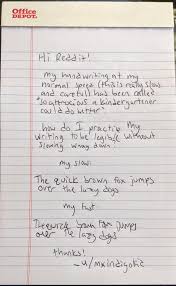 Office DEPOT.
Hi Reddit!
my handwriting at my
normal speed (this is really slow
and careful) has been called
"so atrocious a kindergartener
could do better"
how do I practice my
writing to be legible without
slowing way down?
my slow:
The quick brown fox jumps
over the lazy dogs
my fast
The quick brown fox jumps
over the lazy dogs
thanks!
-u/mxindigotic